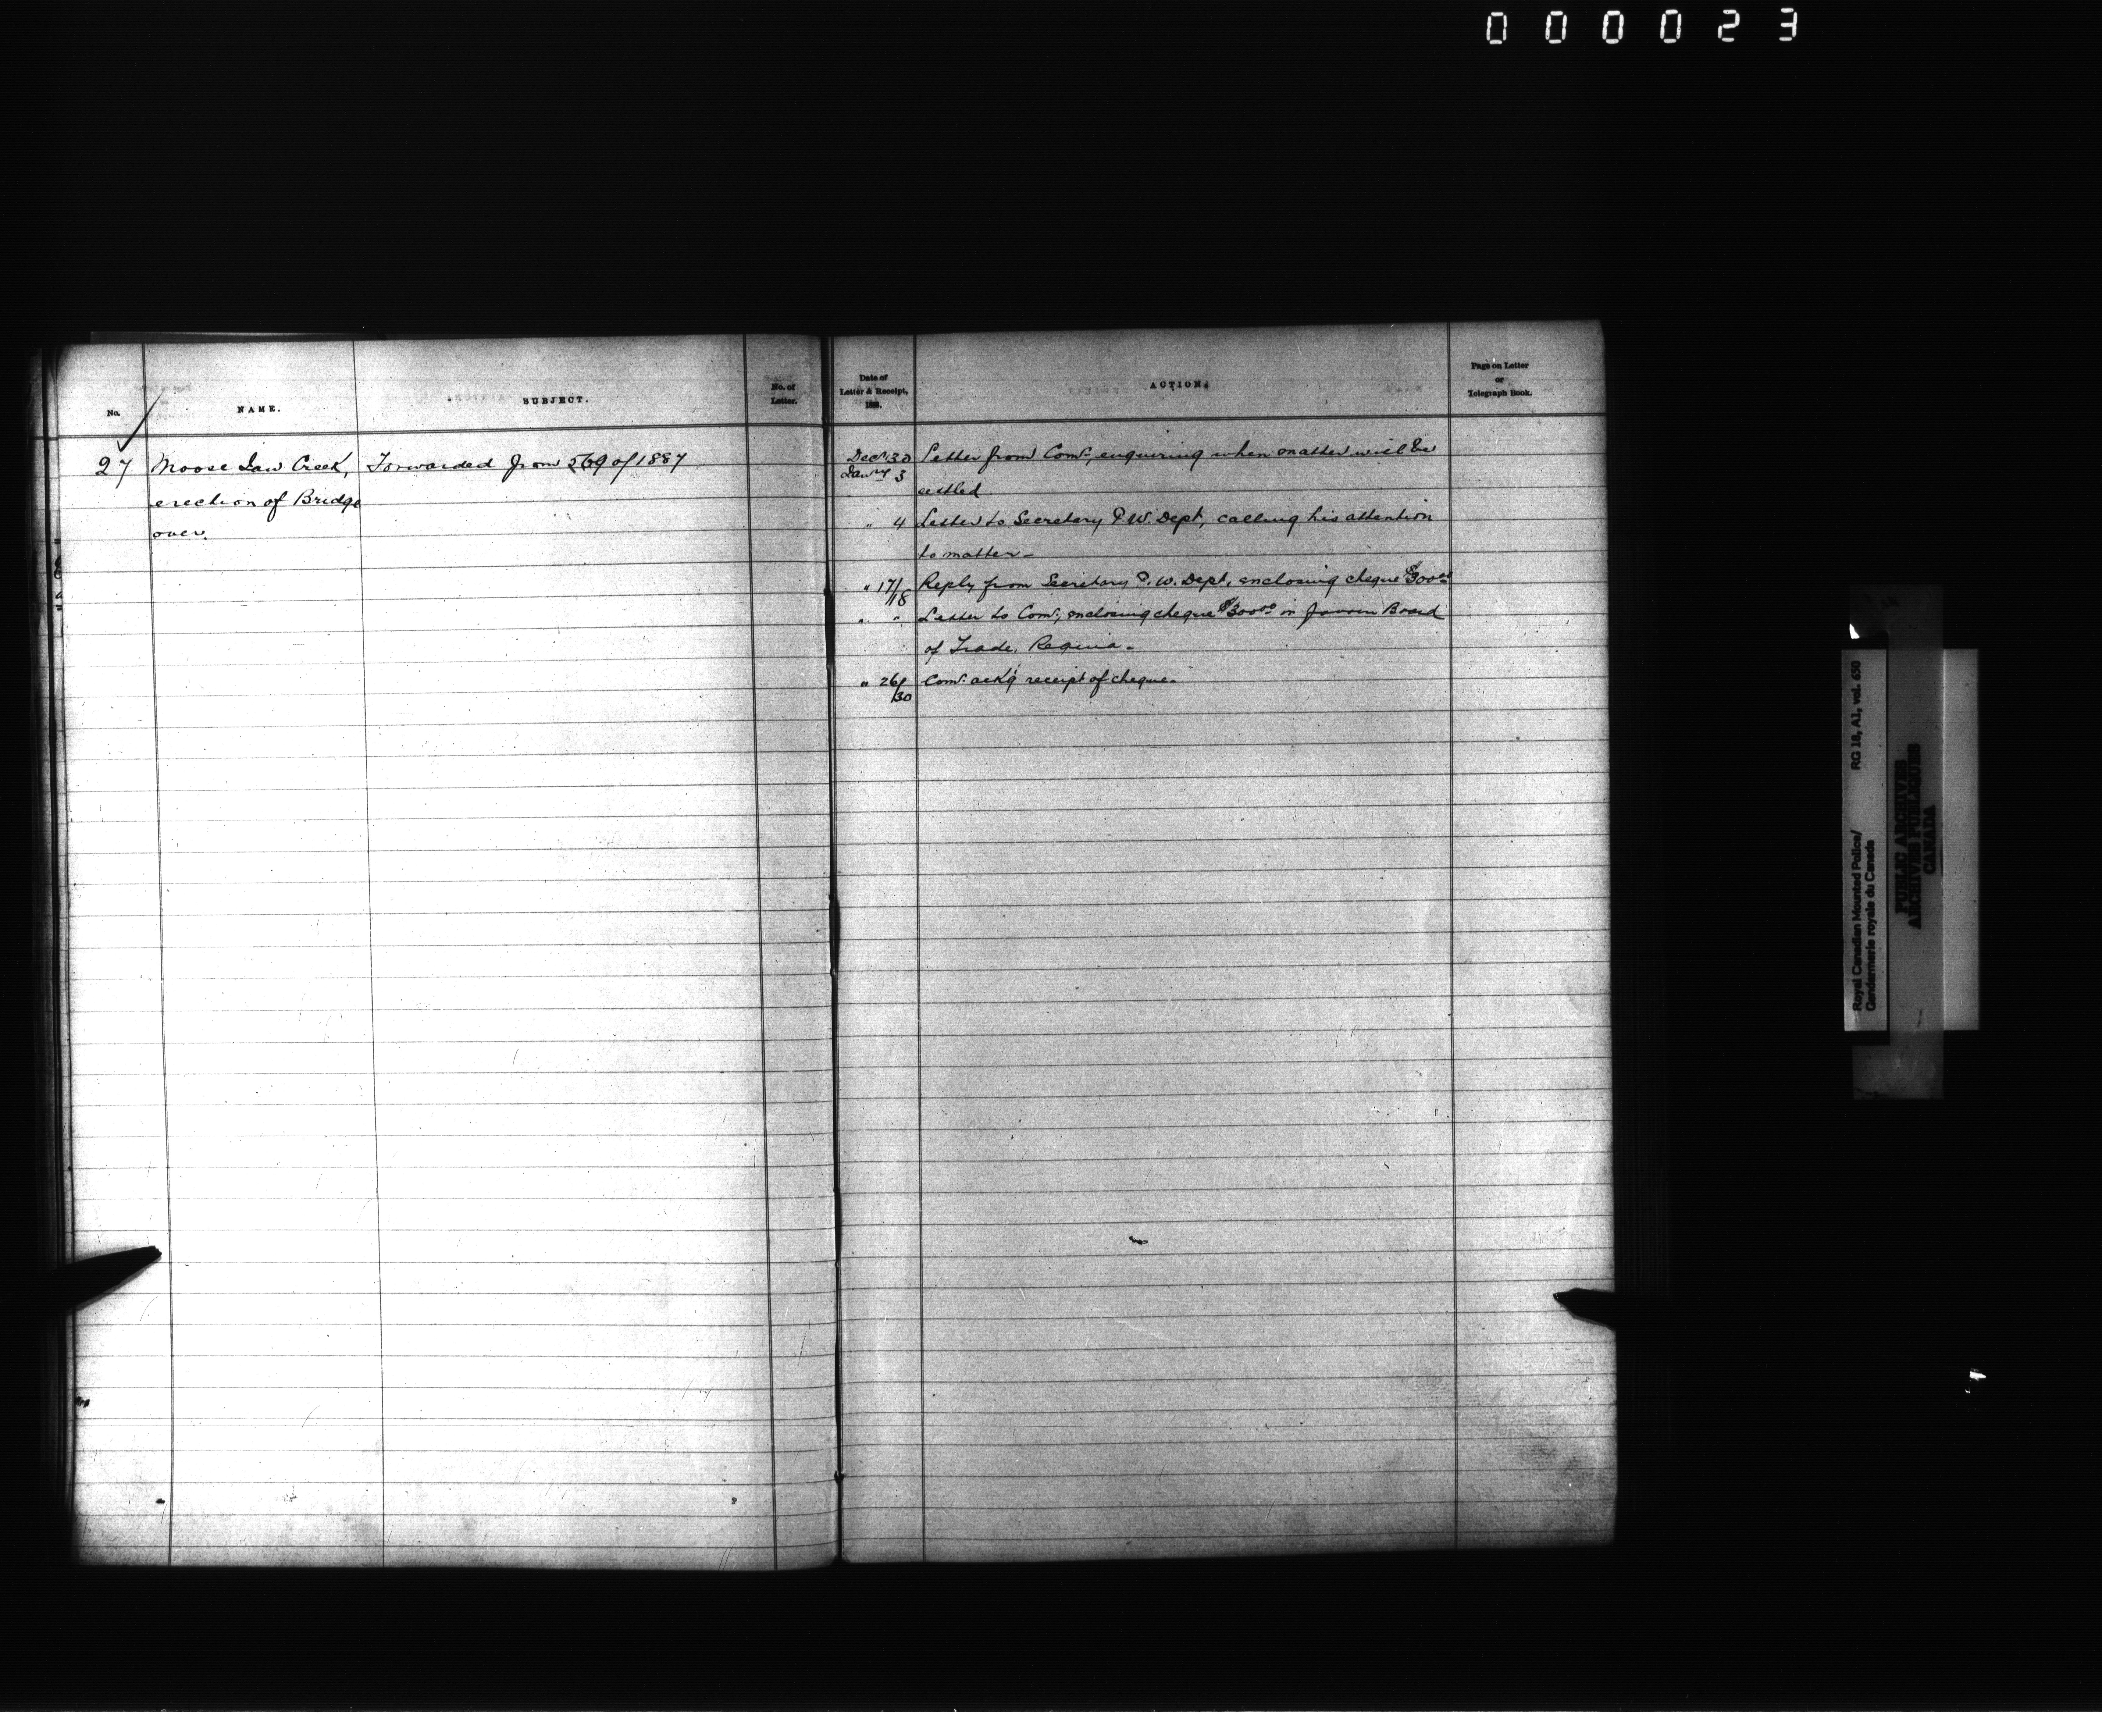 000023
No.
NAME.
SUBJECT.
No. of
Letter.
27
Moose Jaw Creek,
erection of Bridge
over.
Forwarded from 569 of 1887
Date of
Letter & Receipt,
188.
ACTION.
Page on Letter
or
Telegraph Book.
Decr. 30 Letter from Comr., enquiring when matter will be
Jany 3
settled
" 4 Letter to Secretary P.W. Dept, calling his attention
to matter-
" 17/18 Reply from Secretary P.W. Dept, enclosing cheque $300.00
" " Letter to Comr., enclosing cheque $300.00 in favour Board
of Trade, Regina-
" 26/30 Comr. ack'g receipt of cheque-
Royal Canadian Mounted Police/ RG 18, A1, vol. 650
Gendarmerie royale du Canada
PUBLIC ARCHIVES
ARCHIVES PUBLIQUES
CANADA